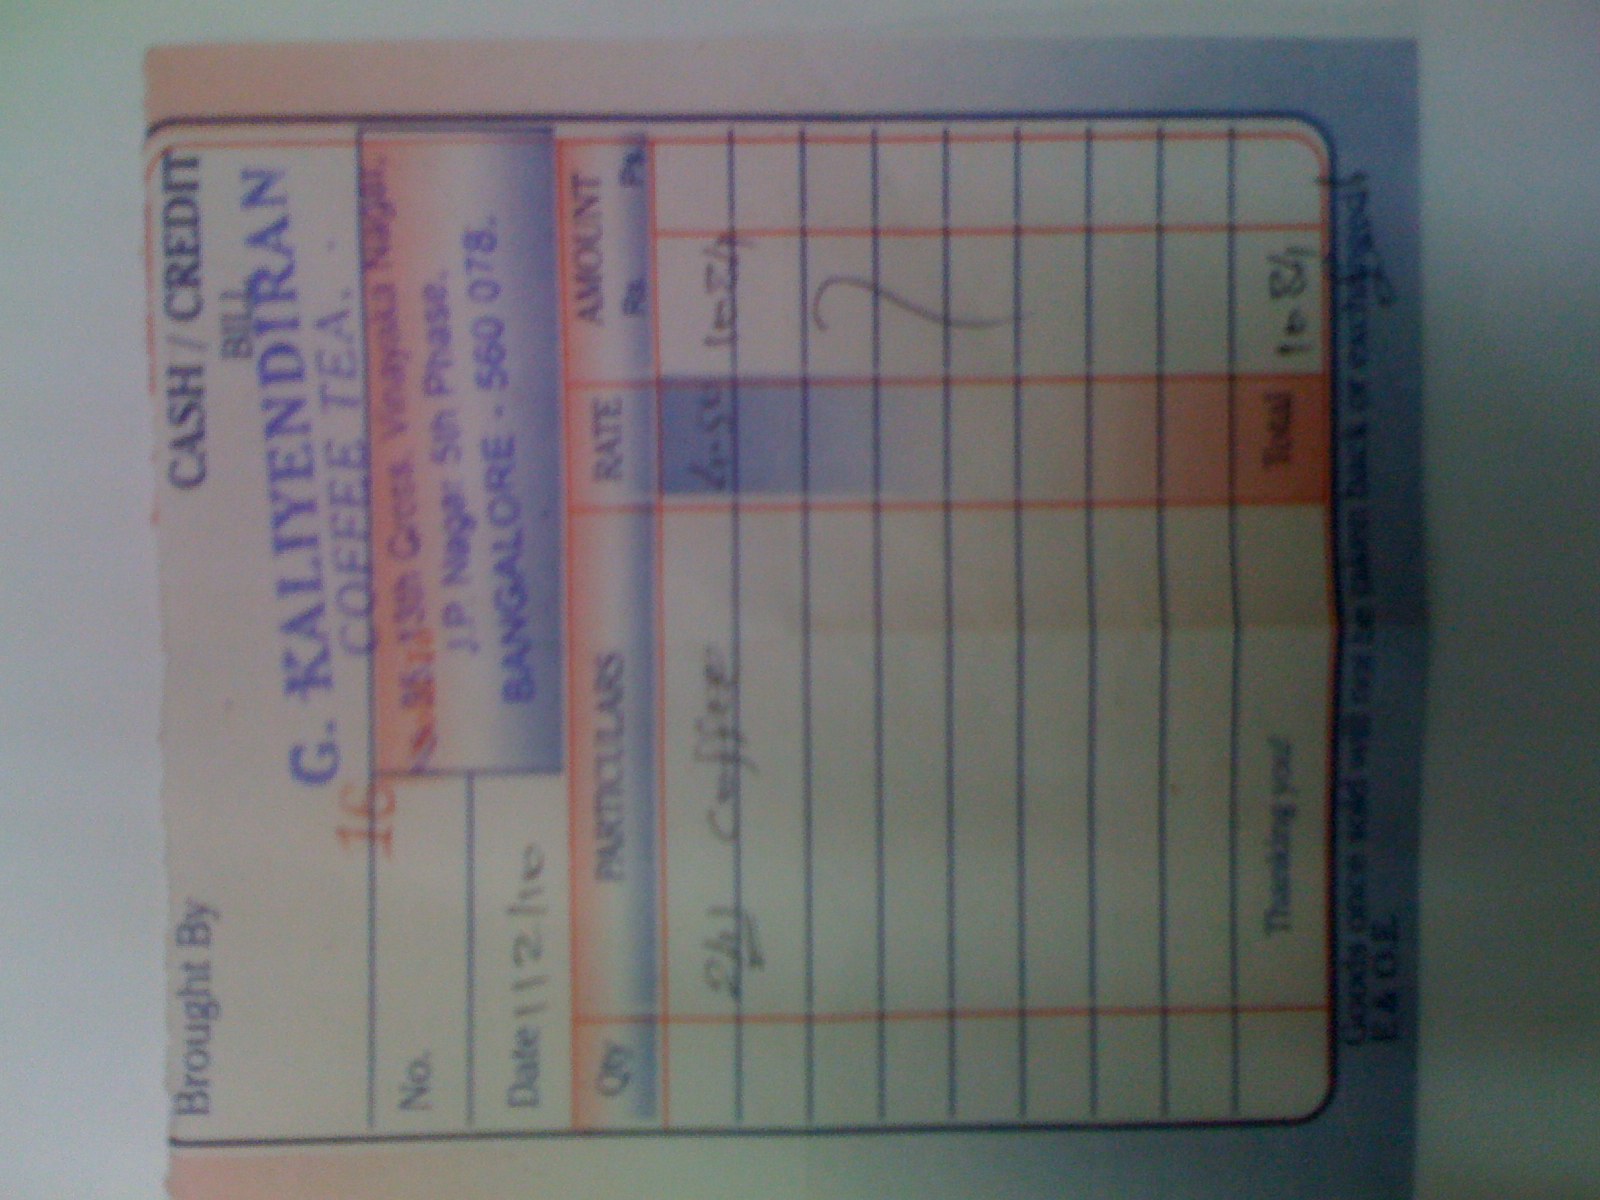 Brought By
CASH / CREDIT
BILL
G. KALIYENDIRAN
COFFEE TEA.
16
No.
13th Cross, Vinayaka Nagar,
J.P Nagar 5th Phase,
BANGALORE - 560 078.
Date 112/10
Qty PARTICULARS RATE AMOUNT
Rs. Ps.
241 Coffee 4.50 108/1
Thanking you! Total 108/1
Goods once sold will not be taken back or exchanged
E & O.E.